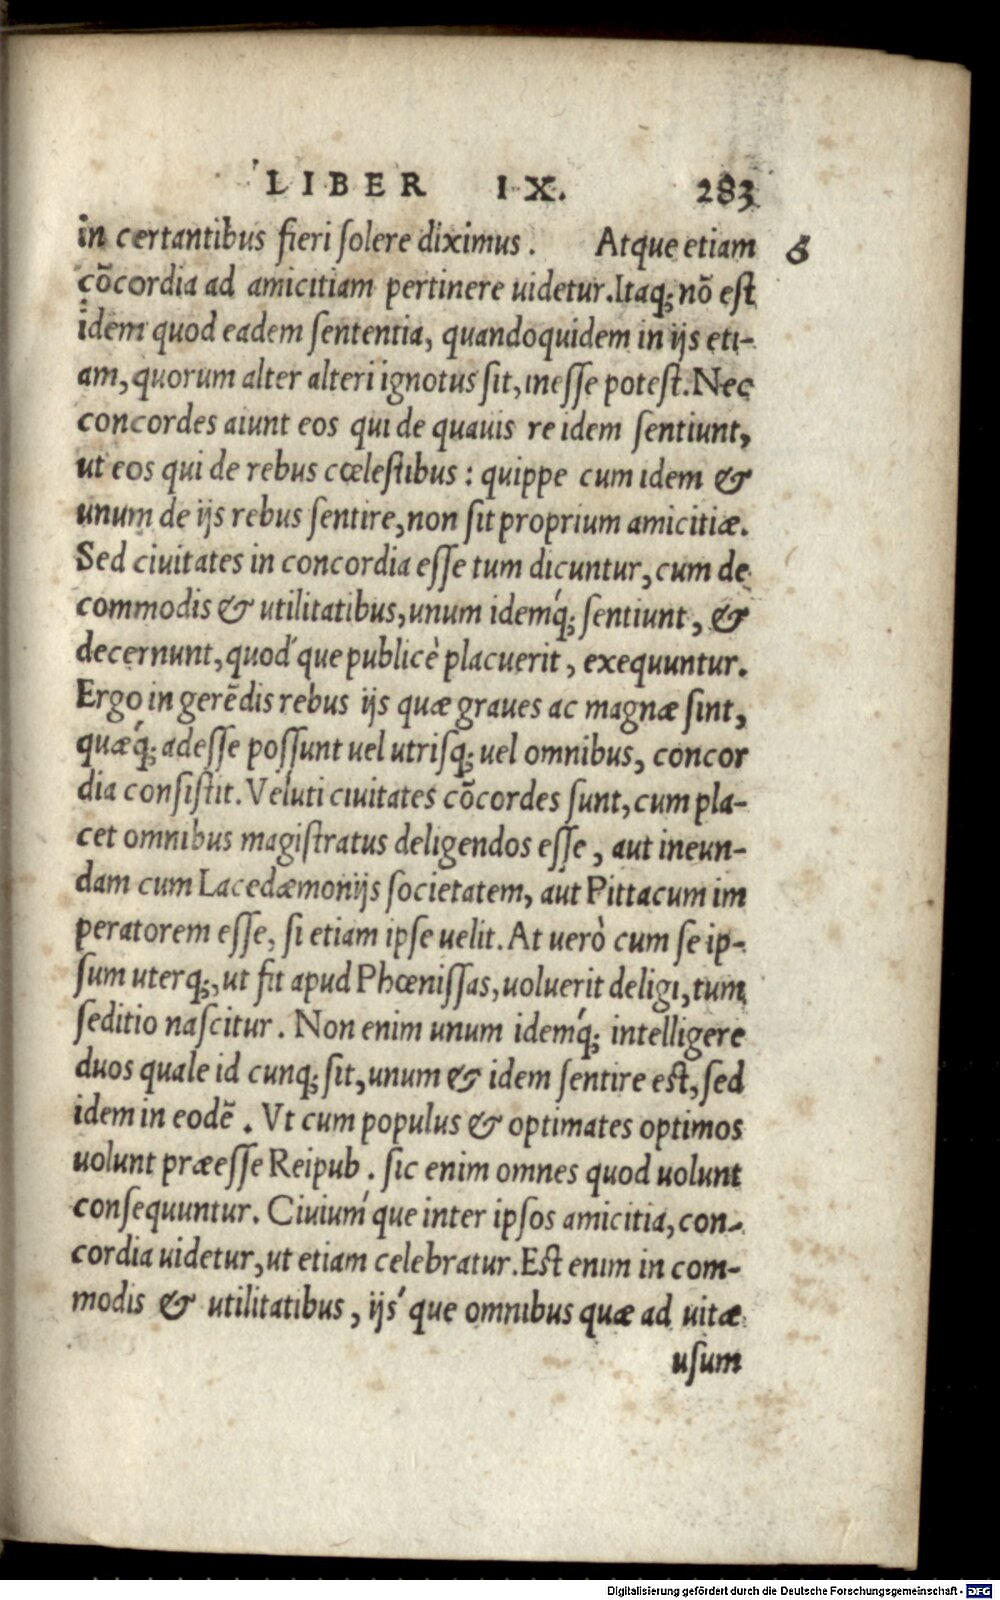 LIBER IX. 283
in certantibus fieri ſolere diximus. Atque etiam 6
cōcordia ad amicitiam pertinere uidetur. Itaq; nō eſt
idem quod eadem ſententia, quandoquidem in ijs eti-
am, quorum alter alteri ignotus ſit, ineſſe poteſt. Nec
concordes aiunt eos qui de quauis re idem ſentiunt,
ut eos qui de rebus cœleſtibus: quippe cum idem &
unum de ijs rebus ſentire, non ſit proprium amicitiæ.
Sed ciuitates in concordia eſſe tum dicuntur, cum de
commodis & utilitatibus, unum idemq́; ſentiunt, &
decernunt, quod́ que publicè placuerit, exequuntur.
Ergo in gerēdis rebus ijs quæ graues ac magnæ ſint,
quæq́; adeſſe poſſunt uel utriſq; uel omnibus, concor
dia conſiſtit. Veluti ciuitates cōcordes ſunt, cum pla-
cet omnibus magiſtratus deligendos eſſe, aut ineun-
dam cum Lacedæmonijs ſocietatem, aut Pittacum im
peratorem eſſe, ſi etiam ipſe uelit. At uerò cum ſe ip-
ſum uterq;, ut fit apud Phœniſſas, uoluerit deligi, tum
ſeditio naſcitur. Non enim unum idemq́; intelligere
duos quale id cunq; ſit, unum & idem ſentire eſt, ſed
idem in eodē. Vt cum populus & optimates optimos
uolunt præeſſe Reipub. ſic enim omnes quod uolunt
conſequuntur. Ciuiuḿ que inter ipſos amicitia, con-
cordia uidetur, ut etiam celebratur. Eſt enim in com-
modis & utilitatibus, ijś que omnibus quæ ad uitæ
uſum
Digitalisierung gefördert durch die Deutsche Forschungsgemeinschaft - DFG